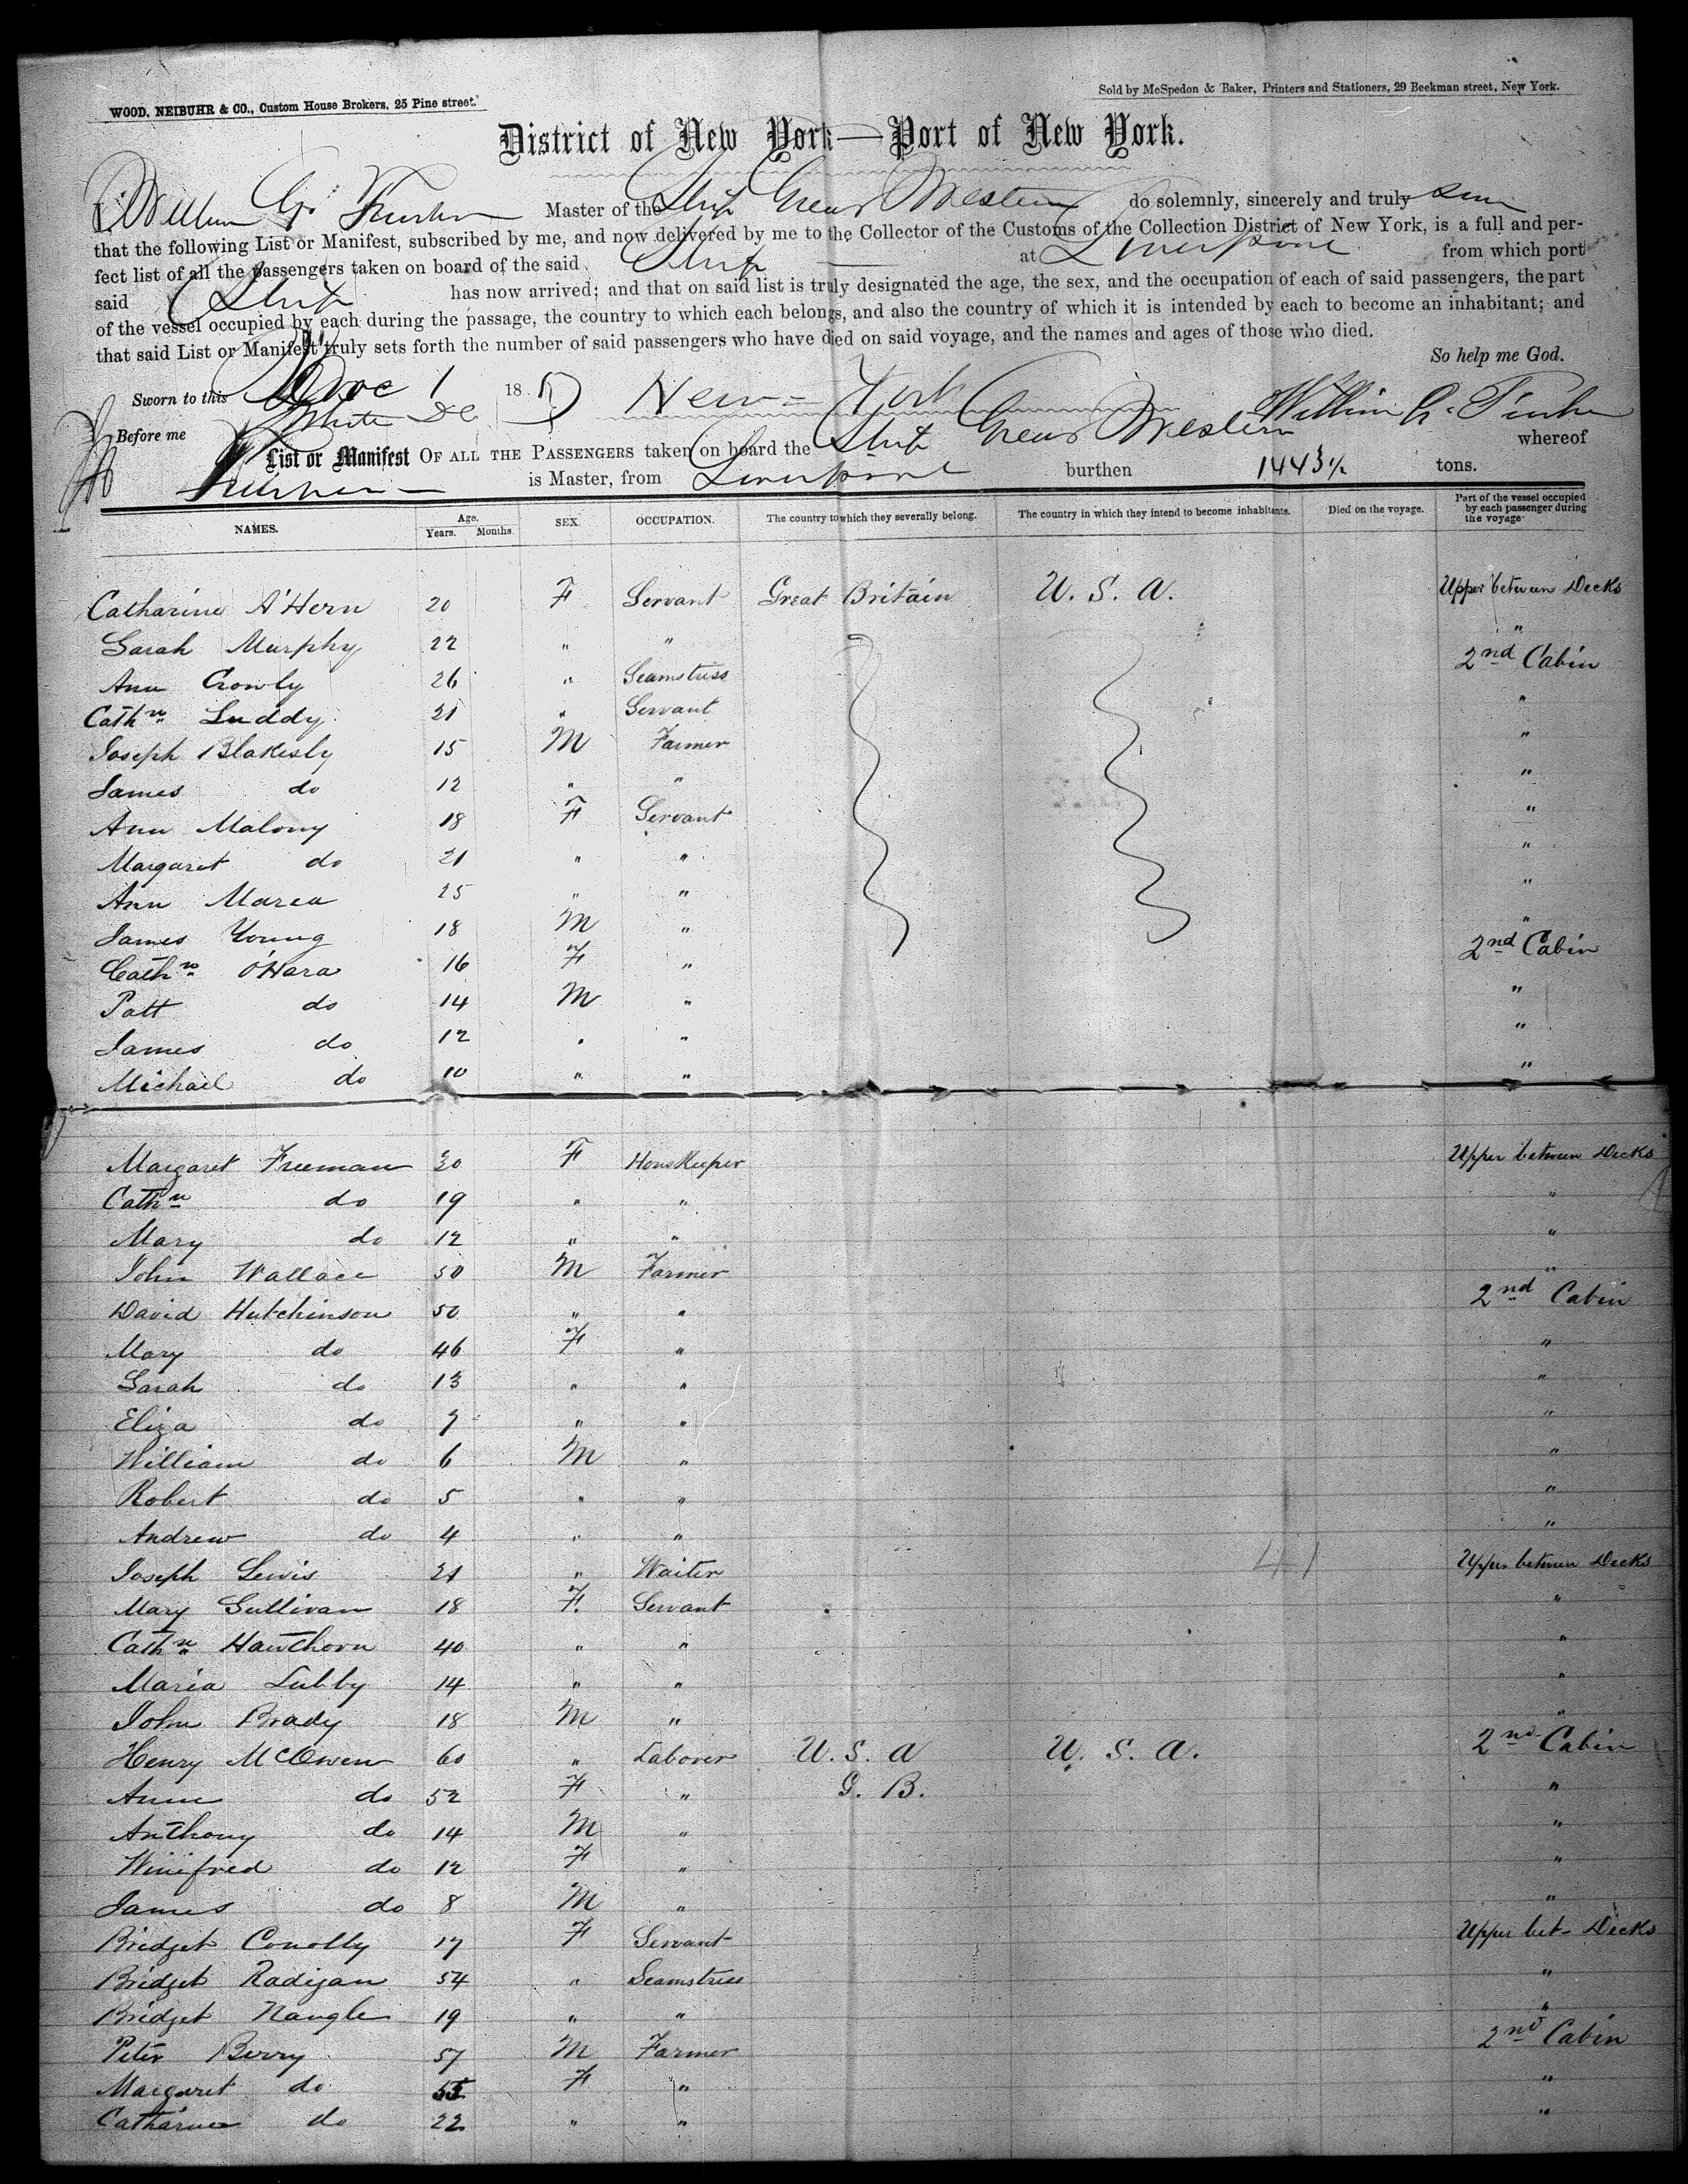 WOOD, NEIBUHR & CO., Custom House Brokers, 25 Pine street.
Sold by McSpedon & Baker, Printers and Stationers, 29 Beekman street, New York.
District of New York—Port of New York.
I, William G. Master of the Ship Great Western do solemnly, sincerely and truly
that the following List or Manifest, subscribed by me, and now delivered by me to the Collector of the Customs of the Collection District of New York, is a full and per-
fect list of all the passengers taken on board of the said Ship at Liverpool from which port
said Ship has now arrived; and that on said list is truly designated the age, the sex, and the occupation of each of said passengers, the part
of the vessel occupied by each during the passage, the country to which each belongs, and also the country of which it is intended by each to become an inhabitant; and
that said List or Manifest truly sets forth the number of said passengers who have died on said voyage, and the names and ages of those who died.
So help me God.
Sworn to this 1 18 New-York William G.
Before me
List or Manifest OF ALL THE PASSENGERS taken on board the Ship Great Western whereof
is Master, from Liverpool burthen 1443 tons.
NAMES. Age. Years. Months. SEX. OCCUPATION. The country to which they severally belong. The country in which they intend to become inhabitants. Died on the voyage. Part of the vessel occupied by each passenger during the voyage
Catharine A'Hern 20 F Servant Great Britain U. S. A. Upper between Decks
Sarah Murphy 22 " " "
Ann Crowly 26 " Seamstress 2nd Cabin
Cathn Luddy 21 " Servant "
Joseph Blakesly 15 M Farmer "
James do 12 " " "
Ann Malony 18 F Servant "
Margaret do 21 " " "
Ann Marea 25 " " "
James Young 18 M " "
Cathn O'Hara 16 F " 2nd Cabin
Patt do 14 M " "
James do 12 " " "
Michael do 10 " " "
Margaret Freeman 30 F HouseKeeper Upper between Decks
Cathn do 19 " " "
Mary do 12 " " "
John Wallace 50 M Farmer "
David Hutchinson 50 " " 2nd Cabin
Mary do 46 F " "
Sarah do 13 " " "
Eliza do 7 " " "
William do 6 M " "
Robert do 5 " " "
Andrew do 4 " " "
Joseph Lewis 21 " Waiter 41 Upper between Decks
Mary Sullivan 18 F. Servant "
Cathn Hawthorn 40 " " "
Maria Lubby 14 " " "
John Brady 18 M " "
Henry McOwen 60 " Laborer U. S. A U. S. A. 2nd Cabin
Anne do 52 F " G. B. "
Anthony do 14 M " "
Winifred do 12 F " "
James do 8 M " "
Bridget Conolly 17 F Servant Upper bet- Decks
Bridget Radigan 54 " Seamstress "
Bridget Nangle 19 " " "
Peter Berry 57 M Farmer 2nd Cabin
Margaret do 55 F " "
Catharine do 22 " " "